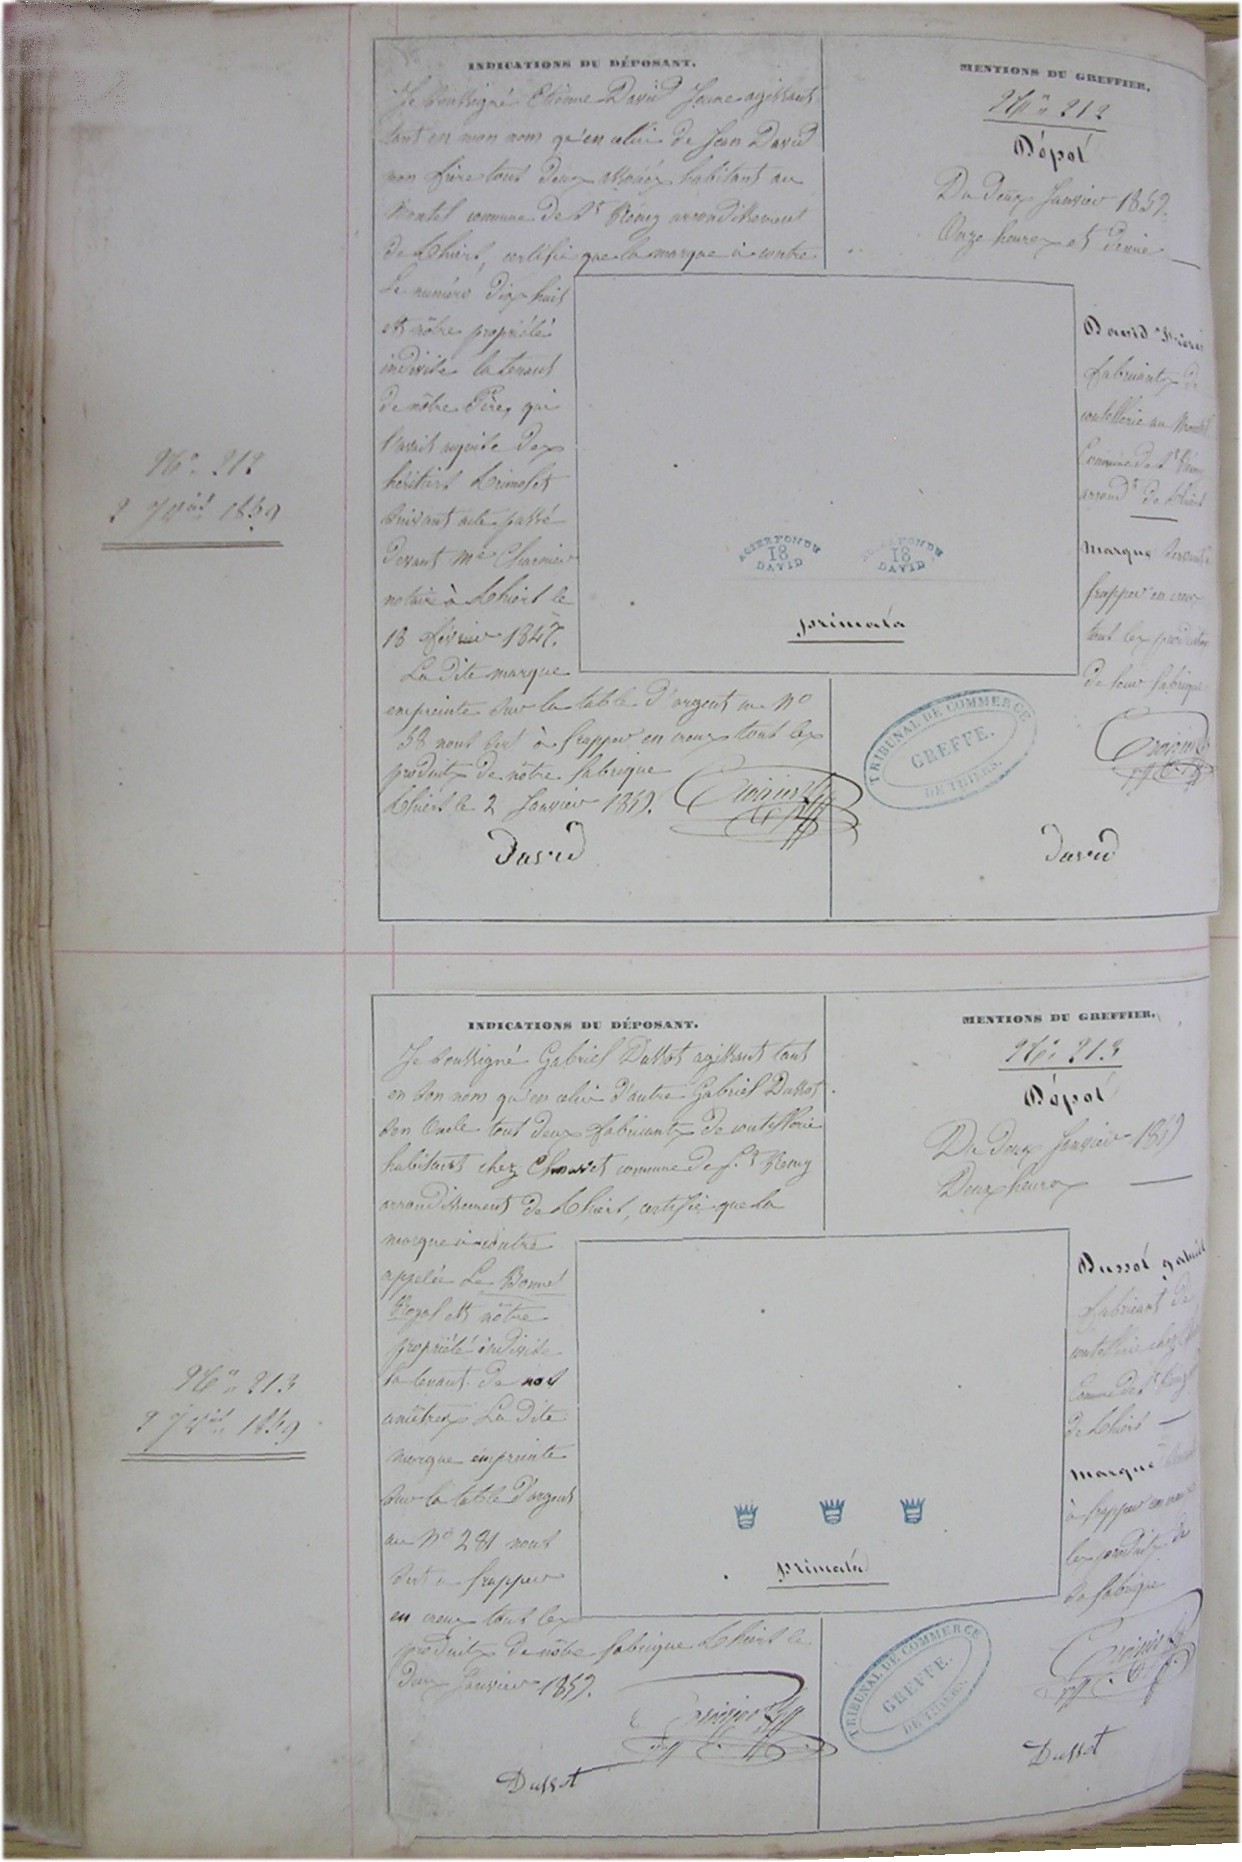 INDICATIONS DU DÉPOSANT.
Je soussigné Etienne David Jeune agissant
tant en mon nom qu'en celui de Jean David
mon frère tous deux associés habitant au
Montel commune de St Rémy arrondissement
de Thiers, certifie que la marque ci contre
Le numéro dix huit
est nôtre propriété
indivise la tenant
de nôtre Père, qui
l'avait acquise des
héritiers
suivant acte passé
devant Me
notaire à Thiers le
18 février 1847.
La dite marque
empreinte sur la table d'argent au No
58 nous sert à frapper en creux tous les
produits de nôtre fabrique
Thiers le 2 Janvier 1859.
David
MENTIONS DU GREFFIER.
No 212
Dépôt
Du deux Janvier 1859.
Onze heures et demie
David frères
fabricants de
coutellerie au Montel
Commune de St Rémy
arrondt de Thiers
Marque servant à
frapper en creux
tous les produits
de leur fabrique
ACIER FONDU
18
DAVID
ACIER FONDU
18
DAVID
primata
TRIBUNAL DE COMMERCE
GREFFE.
DE THIERS.
David
No 212
2 Jvier 1859
INDICATIONS DU DÉPOSANT.
Je soussigné Gabriel Dussot agissant tant
en son nom qu'en celui d'autre Gabriel Dussot
son Oncle tous deux fabricants de coutellerie
habitant chez Chouvet commune de St Remy
arrondissement de Thiers, certifie que la
marque ci contre
appelée Le Bonnet
Royal est nôtre
propriété indivise
la tenant de nos
ancêtres La dite
marque empreinte
sur la table d'argent
au No 281 nous
sert a frapper
en creux tous les
produits de nôtre fabrique Thiers le
deux Janvier 1859.
Dussot
MENTIONS DU GREFFIER.
No 213
Dépôt
Du deux Janvier 1859
Deux heures
Dussot gabriel
fabricant de
coutellerie chez
Comune de St Remy
de Thiers
Marque
à frapper en creux
les produits de
sa fabrique
primata
TRIBUNAL DE COMMERCE
GREFFE.
DE THIERS.
Dussot
No 213
2 Jvier 1859